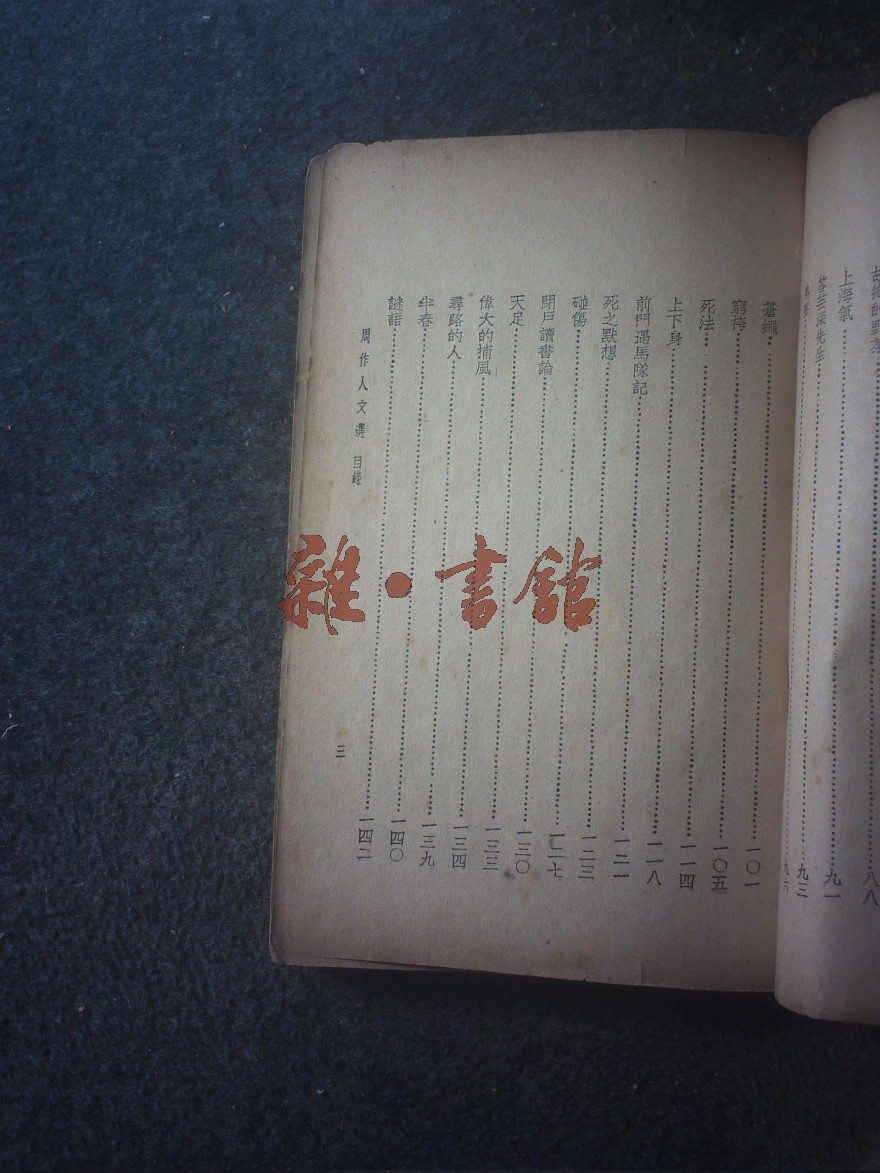 上海氣……九一
答芸深先生……九三
蒼蠅……一〇一
窮袴……一〇五
死法……一一四
上下身……一一八
前門遇馬隊記……一二一
死之默想……一二三
碰傷……一二七
閉戶讀書論……一三〇
天足……一三三
偉大的捕風……一三四
尋路的人……一三九
半春……一四〇
謎語……一四二
周作人文選 目錄
三
雜·書舘